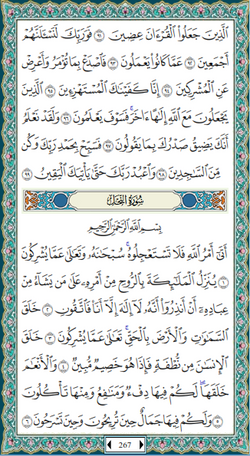 الَّذِينَ جَعَلُوا الْقُرْءَانَ عِضِينَ ٩١ فَوَرَبِّكَ لَنَسْـَٔلَنَّهُمْ
أَجْمَعِينَ ٩٢ عَمَّا كَانُوا يَعْمَلُونَ ٩٣ فَاصْدَعْ بِمَا تُؤْمَرُ وَأَعْرِضْ
عَنِ الْمُشْرِكِينَ ٩٤ إِنَّا كَفَيْنَاكَ الْمُسْتَهْزِءِينَ ٩٥ الَّذِينَ
يَجْعَلُونَ مَعَ اللَّهِ إِلَٰهًا ءَاخَرَ فَسَوْفَ يَعْلَمُونَ ٩٦ وَلَقَدْ نَعْلَمُ
أَنَّكَ يَضِيقُ صَدْرُكَ بِمَا يَقُولُونَ ٩٧ فَسَبِّحْ بِحَمْدِ رَبِّكَ وَكُن
مِّنَ السَّاجِدِينَ ٩٨ وَاعْبُدْ رَبَّكَ حَتَّىٰ يَأْتِيَكَ الْيَقِينُ ٩٩
سُورَةُ النَّحْلِ
بِسْمِ اللَّهِ الرَّحْمَٰنِ الرَّحِيمِ
أَتَىٰ أَمْرُ اللَّهِ فَلَا تَسْتَعْجِلُوهُ سُبْحَانَهُ وَتَعَالَىٰ عَمَّا يُشْرِكُونَ
١ يُنَزِّلُ الْمَلَائِكَةَ بِالرُّوحِ مِنْ أَمْرِهِ عَلَىٰ مَن يَشَاءُ مِنْ
عِبَادِهِ أَنْ أَنذِرُوا أَنَّهُ لَا إِلَٰهَ إِلَّا أَنَا فَاتَّقُونِ ٢ خَلَقَ
السَّمَاوَاتِ وَالْأَرْضَ بِالْحَقِّ تَعَالَىٰ عَمَّا يُشْرِكُونَ ٣ خَلَقَ
الْإِنسَانَ مِن نُّطْفَةٍ فَإِذَا هُوَ خَصِيمٌ مُّبِينٌ ٤ وَالْأَنْعَامَ
خَلَقَهَا لَكُمْ فِيهَا دِفْءٌ وَمَنَافِعُ وَمِنْهَا تَأْكُلُونَ
٥ وَلَكُمْ فِيهَا جَمَالٌ حِينَ تُرِيحُونَ وَحِينَ تَسْرَحُونَ ٦
267